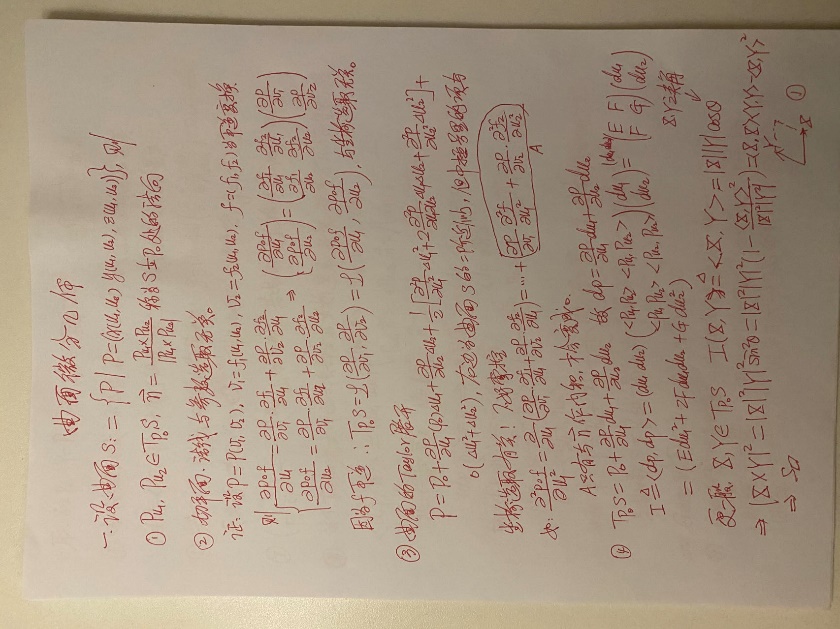 曲面微分几何
一. 设曲面 S: = {P | P=(x(u₁,u₂), y(u₁,u₂), z(u₁,u₂))}, 则
① Pu₁, Pu₂ ∈ Tp₀S, n⃗ = Pu₁×Pu₂ / |Pu₁×Pu₂| 称为S在P₀处的法向
② 切平面、法线与参数选取无关。
证: 设P=P(v₁,v₂), v₁=f₁(u₁,u₂), v₂=f₂(u₁,u₂), f=(f₁,f₂)为可逆变换
则 { ∂P∘f/∂u₁ = ∂P/∂v₁·∂f₁/∂u₁ + ∂P/∂v₂·∂f₂/∂u₁
∂P∘f/∂u₂ = ∂P/∂v₁·∂f₁/∂u₂ + ∂P/∂v₂·∂f₂/∂u₂ ⇒ (∂P∘f/∂u₁ ∂P∘f/∂u₂) = (∂f₁/∂u₁ ∂f₂/∂u₁ ∂f₁/∂u₂ ∂f₂/∂u₂)(∂P/∂v₁ ∂P/∂v₂)
因为f可逆 ∴ Tp₀S = L(∂P/∂v₁, ∂P/∂v₂) = L(∂P∘f/∂u₁, ∂P∘f/∂u₂), 与坐标选取无关。
③ 曲面的Taylor展开
P = P₀ + ∂P/∂u₁(P₀)Δu₁ + ∂P/∂u₂Δu₂ + 1/2[∂²P/∂u₁²Δu₁² + 2∂²P/∂u₁∂u₂Δu₁Δu₂ + ∂²P/∂u₂²Δu₂²] +
o(Δu₁²+Δu₂²),
坐标选取有关!
如: ∂²P∘f/∂u₁² = ∂/∂u₁(∂P/∂v₁·∂f₁/∂u₁ + ∂P/∂v₂·∂f₂/∂u₁) = … + [∂P/∂v₁·∂²f₁/∂u₁² + ∂P/∂v₂·∂²f₂/∂u₁²] A
A只有与n⃗作内积,
④ Tp₀S = P₀ + ∂P/∂u₁du₁ + ∂P/∂u₂du₂ 故 dp = ∂P/∂u₁du₁ + ∂P/∂u₂du₂
I ≜ <dp, dp> = (du₁ du₂)(<Pu₁,Pu₁> <Pu₁,Pu₂> <Pu₂,Pu₁> <Pu₂,Pu₂>)(du₁ du₂) = (du₁ du₂)(E F F G)(du₁ du₂)
= (Edu₁² + 2Fdu₁du₂ + Gdu₂²)
更一般, X,Y∈Tp₀S I(X,Y) ≜ <X,Y> = |X||Y|cosθ
⇒ |X×Y|² = |X|²|Y|²sin²θ = |X|²|Y|²(1 - <X,Y>²/|X|²|Y|²) = <X,X><Y,Y> - <X,Y>²
⇒
①